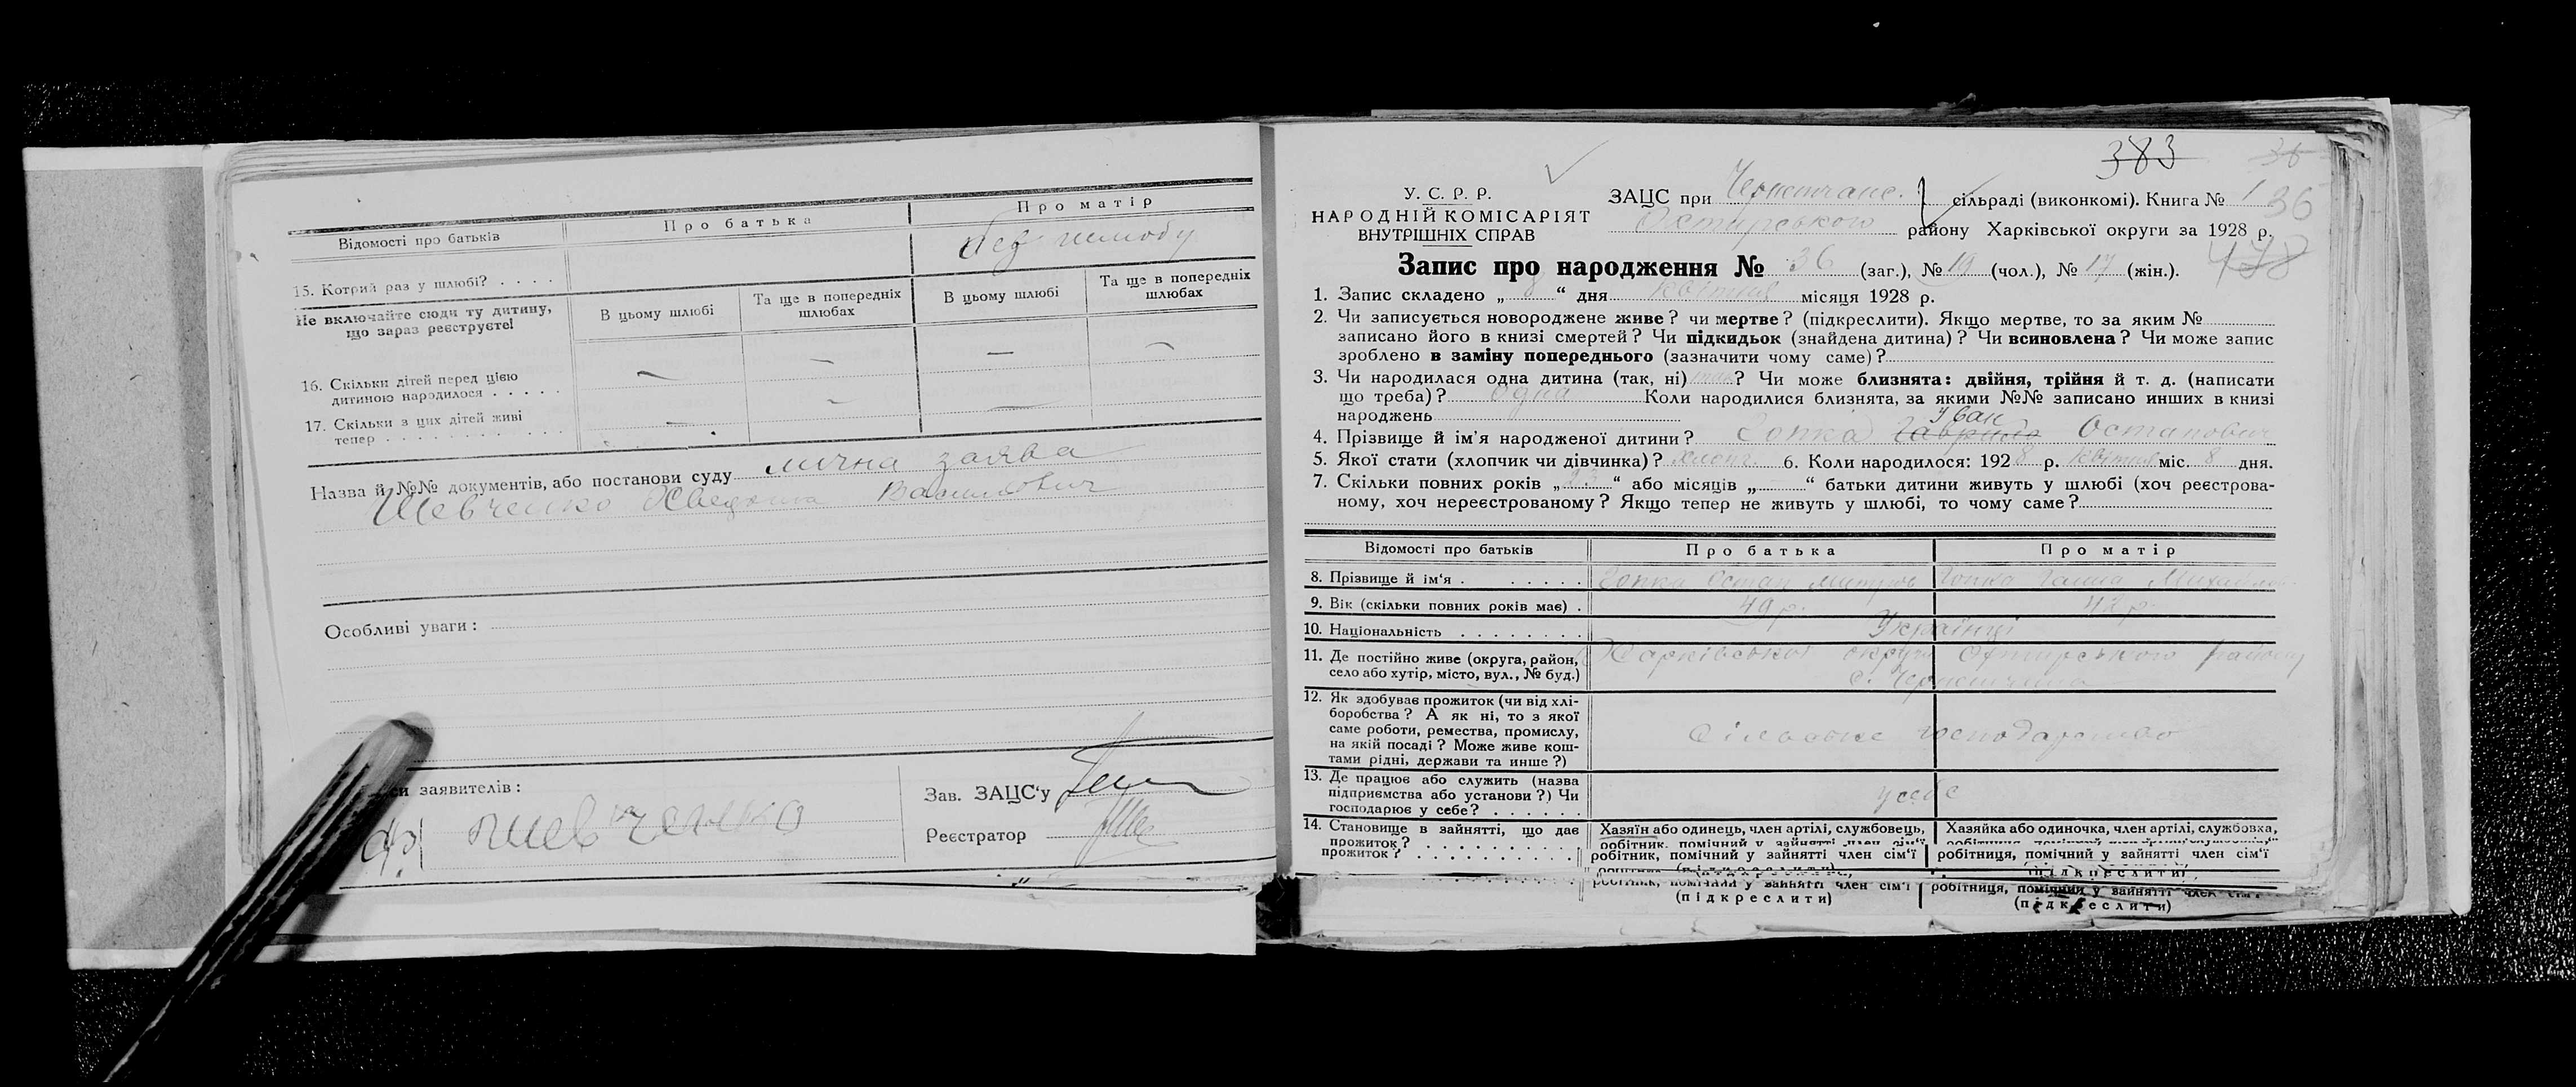 Відомості про батьків
Про батька
Про матір
15. Котрий раз у шлюбі? . . . .
без шлюбу
Не включайте сюди ту дитину, що зараз реєструєте!
В цьому шлюбі
Та ще в попередніх шлюбах
В цьому шлюбі
Та ще в попередніх шлюбах
16. Скільки дітей перед цією
дитиною народилося . . . . .
— — — —
17. Скільки з цих дітей живі
тепер . . . . . . . . . . .
— — —
Назва й №№ документів, або постанови суду лична заява
Шевченко Василович
Особливі уваги:
заявителів:
Шевченко
Зав. ЗАЦС'у
Реєстратор
383
36
У. С. Р. Р.
НАРОДНІЙ КОМІСАРІЯТ
ВНУТРІШНІХ СПРАВ
ЗАЦС при сільраді (виконкомі). Книга № 1
36
Охтирського району Харківської округи за 1928 р.
478
Запис про народження № 36 (заг.), № 19 (чол.), № 17 (жін.).
1. Запис складено „ “ дня квітня місяця 1928 р.
2. Чи записується новороджене живе? чи мертве? (підкреслити). Якщо мертве, то за яким №
записано його в книзі смертей? Чи підкидьок (знайдена дитина)? Чи всиновлена? Чи може запис
зроблено в заміну попереднього (зазначити чому саме)?
3. Чи народилася одна дитина (так, ні) так? Чи може близнята: двійня, трійня й т. д. (написати
що треба)? одна Коли народилися близнята, за якими №№ записано инших в книзі
народжень
Іван
4. Прізвище й ім'я народженої дитини? Гопка Гаврило Остапович
5. Якої стати (хлопчик чи дівчинка)? хлопч. 6. Коли народилося: 1928 р. квітня міс. 8 дня.
7. Скільки повних років „23“ або місяців „ “ батьки дитини живуть у шлюбі (хоч реєстрова-
ному, хоч нереєстрованому? Якщо тепер не живуть у шлюбі, то чому саме?
Відомості про батьків
Про батька
Про матір
8. Прізвище й ім'я . . . . . .
Гопка Остап
Гопка Ганна
9. Вік (скільки повних років має) .
49 р.
42 р.
10. Національність . . . . . . . .
Українці
11. Де постійно живе (округа, район,
село або хутір, місто, вул., № буд.)
Харківської округи Охтирського району
с.
12. Як здобуває прожиток (чи від хлі-
боробства? А як ні, то з якої
саме роботи, ремества, промислу,
на якій посаді? Може живе кош-
тами рідні, держави та инше?)
Сільське господарство
13. Де працює або служить (назва
підприємства або установи?) Чи
господарює у себе? . . . . . .
у себе
14. Становище в зайнятті, що дає
прожиток? . . . . . . . . . .
Хазяїн або одинець, член артілі, службовець,
Хазяйка або одиночка, член артілі, службовка,
прожиток? . . . . . . . . . . .
робітник, помічний у зайнятті член сім'ї
робітниця, помічний у зайнятті член сім'ї
робітник, помічний у зайнятті член сім'ї
(підкреслити)
робітниця, помічний у зайнятті член сім'ї
(підкреслити)